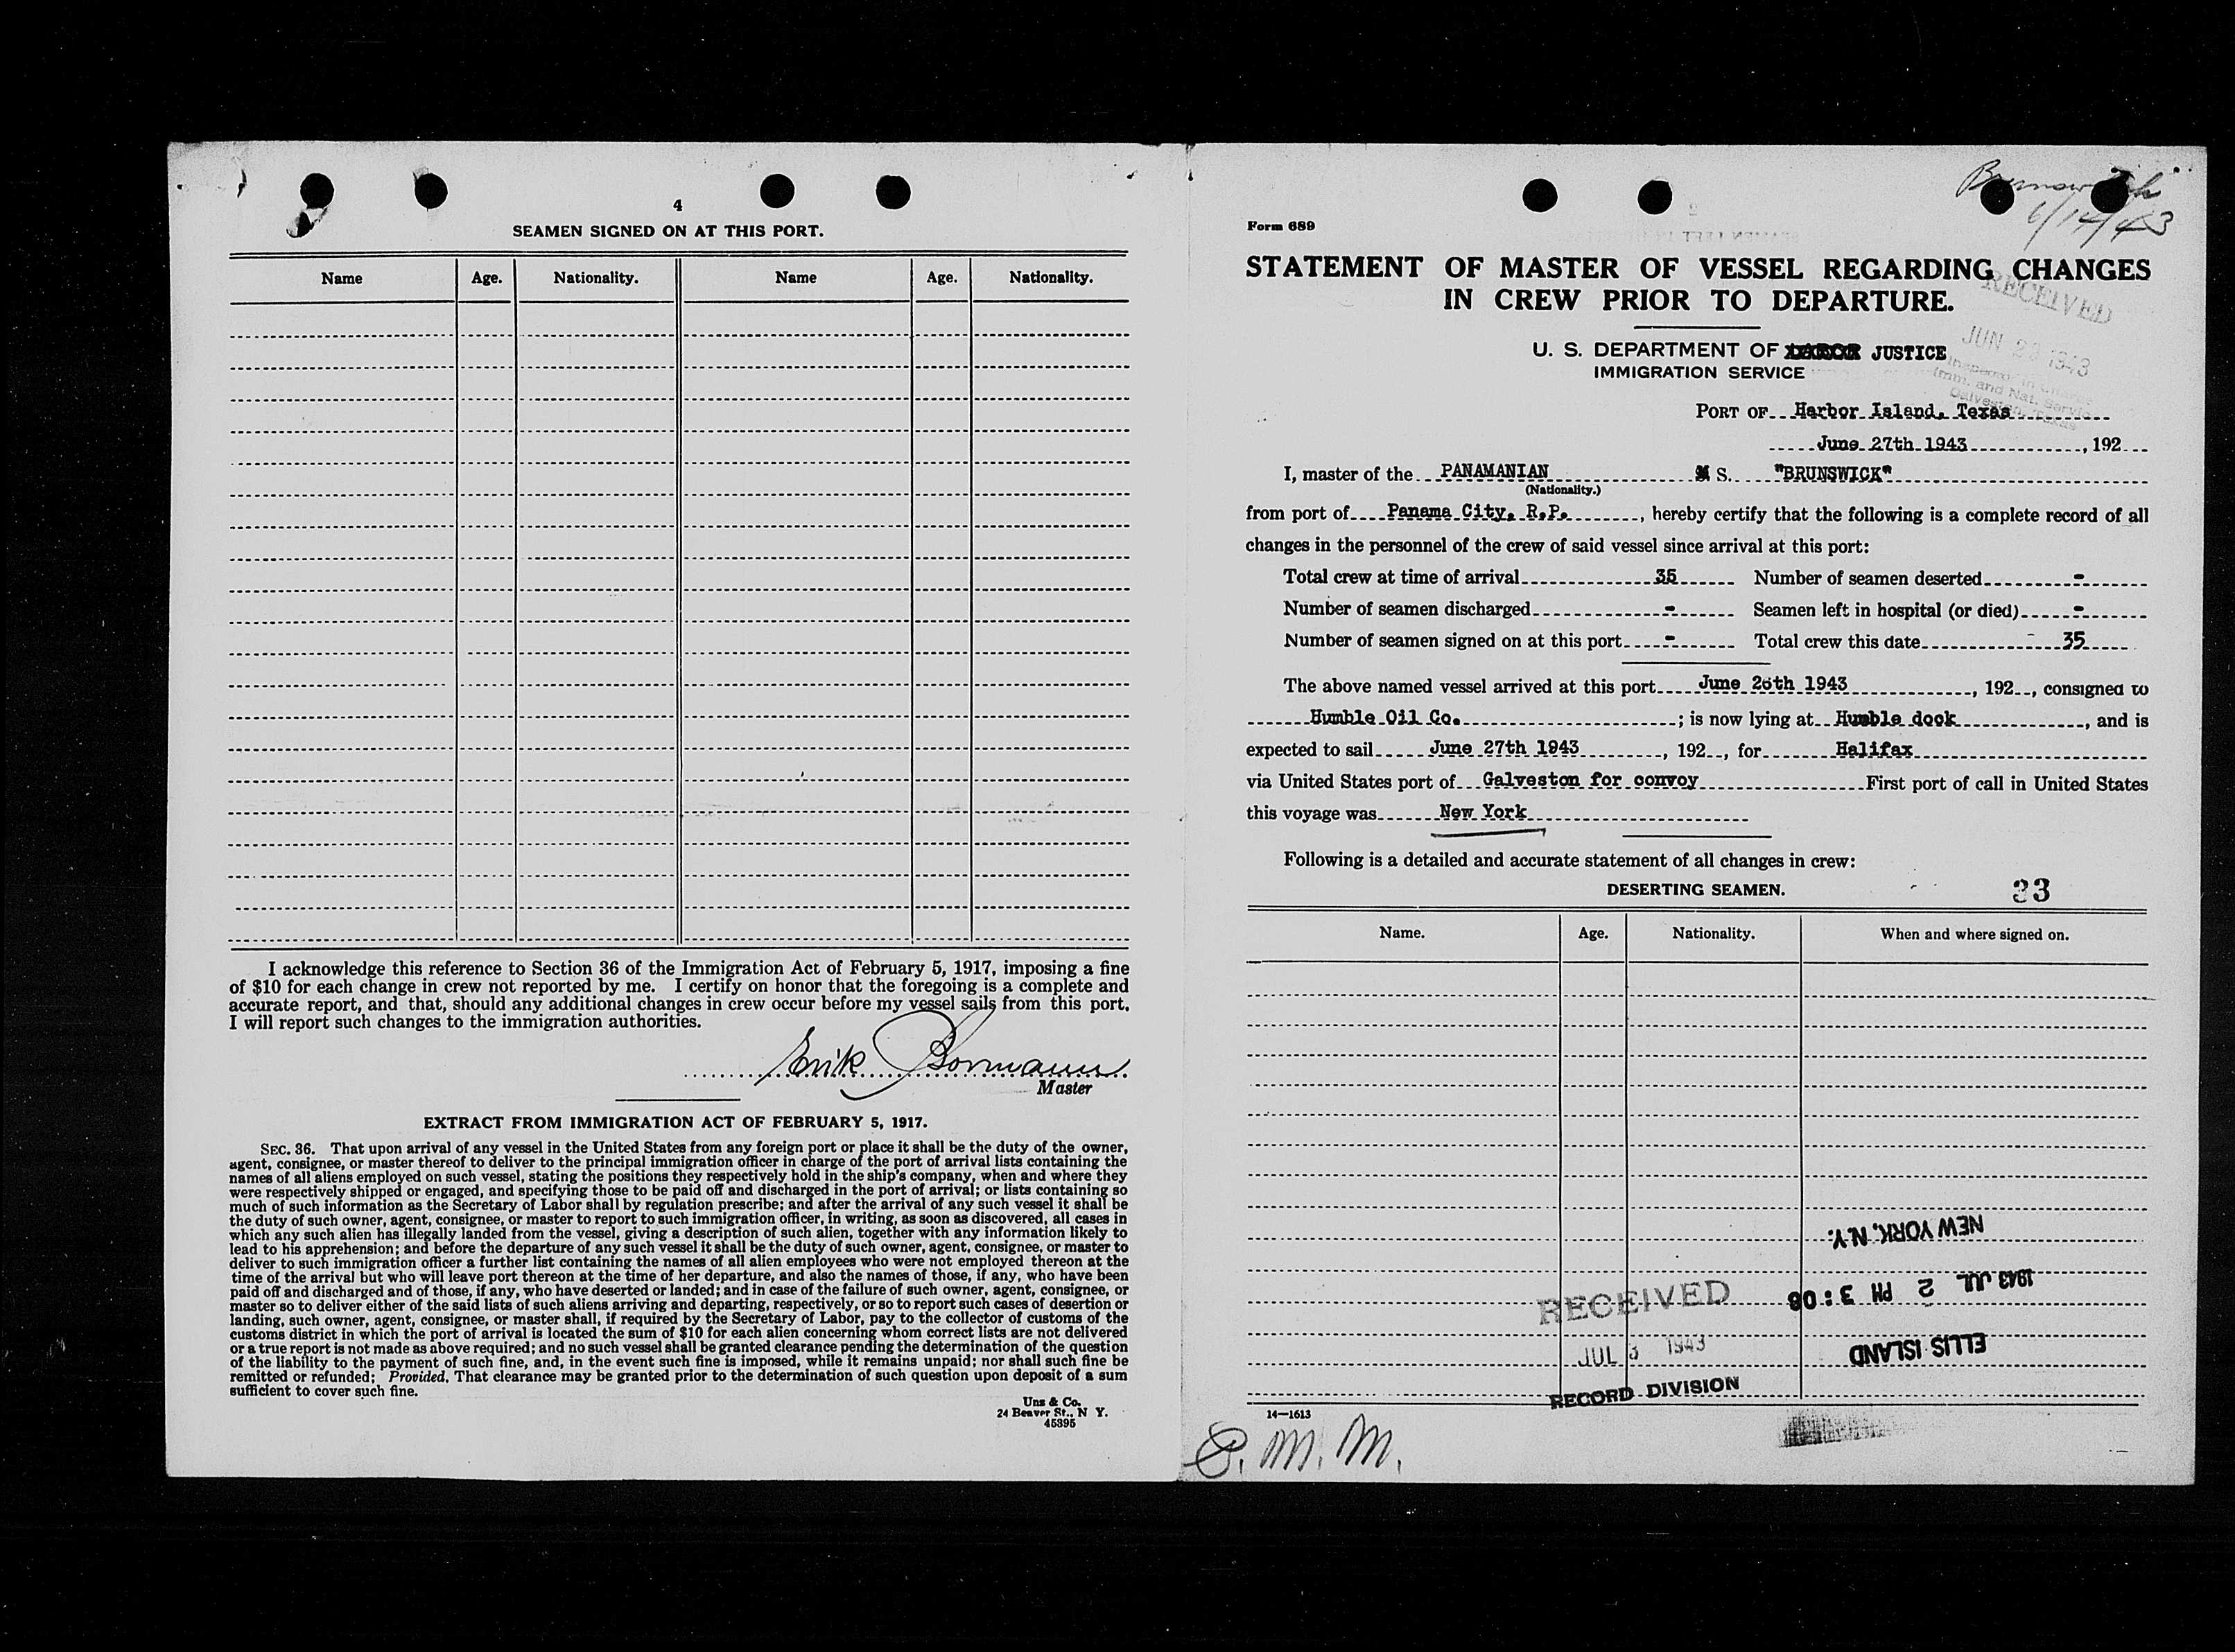 4
SEAMEN SIGNED ON AT THIS PORT.
Name Age. Nationality. Name Age. Nationality.
I acknowledge this reference to Section 36 of the Immigration Act of February 5, 1917, imposing a fine
of $10 for each change in crew not reported by me. I certify on honor that the foregoing is a complete and
accurate report, and that, should any additional changes in crew occur before my vessel sails from this port,
I will report such changes to the immigration authorities.
Erik Bormann
Master
EXTRACT FROM IMMIGRATION ACT OF FEBRUARY 5, 1917.
SEC. 36. That upon arrival of any vessel in the United States from any foreign port or place it shall be the duty of the owner,
agent, consignee, or master thereof to deliver to the principal immigration officer in charge of the port of arrival lists containing the
names of all aliens employed on such vessel, stating the positions they respectively hold in the ship's company, when and where they
were respectively shipped or engaged, and specifying those to be paid off and discharged in the port of arrival; or lists containing so
much of such information as the Secretary of Labor shall by regulation prescribe; and after the arrival of any such vessel it shall be
the duty of such owner, agent, consignee, or master to report to such immigration officer, in writing, as soon as discovered, all cases in
which any such alien has illegally landed from the vessel, giving a description of such alien, together with any information likely to
lead to his apprehension; and before the departure of any such vessel it shall be the duty of such owner, agent, consignee, or master to
deliver to such immigration officer a further list containing the names of all alien employees who were not employed thereon at the
time of the arrival but who will leave port thereon at the time of her departure, and also the names of those, if any, who have been
paid off and discharged and of those, if any, who have deserted or landed; and in case of the failure of such owner, agent, consignee, or
master so to deliver either of the said lists of such aliens arriving and departing, respectively, or so to report such cases of desertion or
landing, such owner, agent, consignee, or master shall, if required by the Secretary of Labor, pay to the collector of customs of the
customs district in which the port of arrival is located the sum of $10 for each alien concerning whom correct lists are not delivered
or a true report is not made as above required; and no such vessel shall be granted clearance pending the determination of the question
of the liability to the payment of such fine, and, in the event such fine is imposed, while it remains unpaid; nor shall such fine be
remitted or refunded; Provided, That clearance may be granted prior to the determination of such question upon deposit of a sum
sufficient to cover such fine.
Unz & Co.
24 Beaver St., N Y.
45395
Brunswick
6/14/43
Form 689
STATEMENT OF MASTER OF VESSEL REGARDING CHANGES
IN CREW PRIOR TO DEPARTURE.
RECEIVED
JUN 28 1943
U. S. DEPARTMENT OF LABOR JUSTICE
IMMIGRATION SERVICE
PORT OF Harbor Island, Texas
June 27th 1943, 192
I, master of the PANAMANIAN M S. "BRUNSWICK"
(Nationality.)
from port of Panama City, R.P., hereby certify that the following is a complete record of all
changes in the personnel of the crew of said vessel since arrival at this port:
Total crew at time of arrival 35 Number of seamen deserted -
Number of seamen discharged - Seamen left in hospital (or died) -
Number of seamen signed on at this port - Total crew this date 35
The above named vessel arrived at this port June 26th 1943, 192, consigned to
Humble Oil Co.; is now lying at Humble dock, and is
expected to sail June 27th 1943, 192, for Halifax
via United States port of Galveston for convoy First port of call in United States
this voyage was New York
Following is a detailed and accurate statement of all changes in crew:
DESERTING SEAMEN. 33
Name. Age. Nationality. When and where signed on.
NEW YORK, N.Y.
1943 JUL 2 PM 3:08
ELLIS ISLAND
RECEIVED
JUL 3 1943
RECORD DIVISION
14—1613
P. M. M.